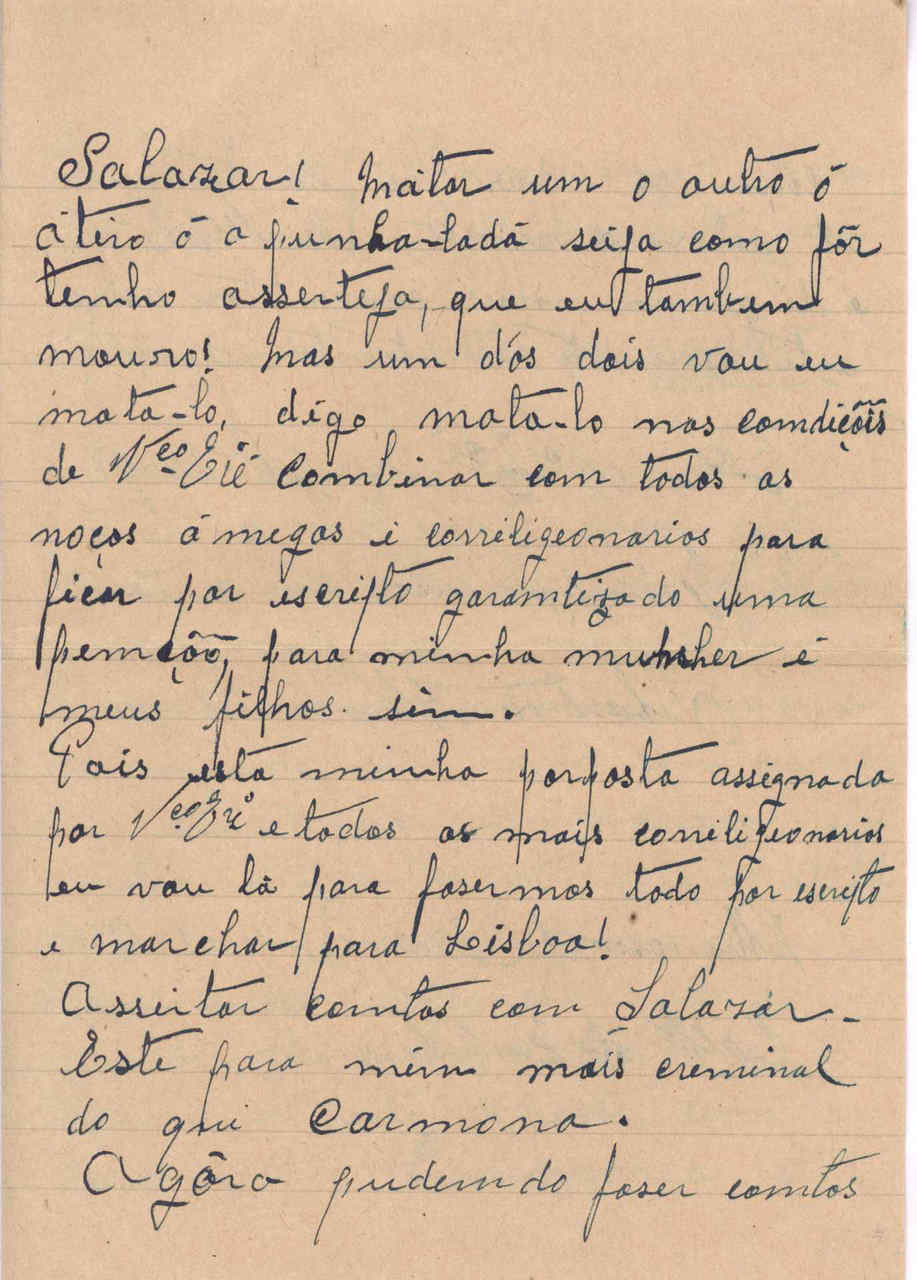 Salazar! Matar um o outro ó
átiro ó a punha-ladá seija como fôr
tenho asserteja, que eu tambem
mouro! Mas um dós dois vou eu
mata-lo, digo mata-lo nas comdiçõis
de V.co Combinar com todos os
noços ámegos i correligeonarios para
ficar por escripto garamtizado uma
pemção, para minha mulher é
meus filhos. sim.
Pois esta minha porposta assignada
por V.co e todos os mais correligeonarios
eu vou lá para fasermos todo por escripto
e marchar para Lisboa!
Asseitar comtas com Salazar.
Este para mim mais creminal
do qui Carmona.
Agôra pudemdo faser comtos